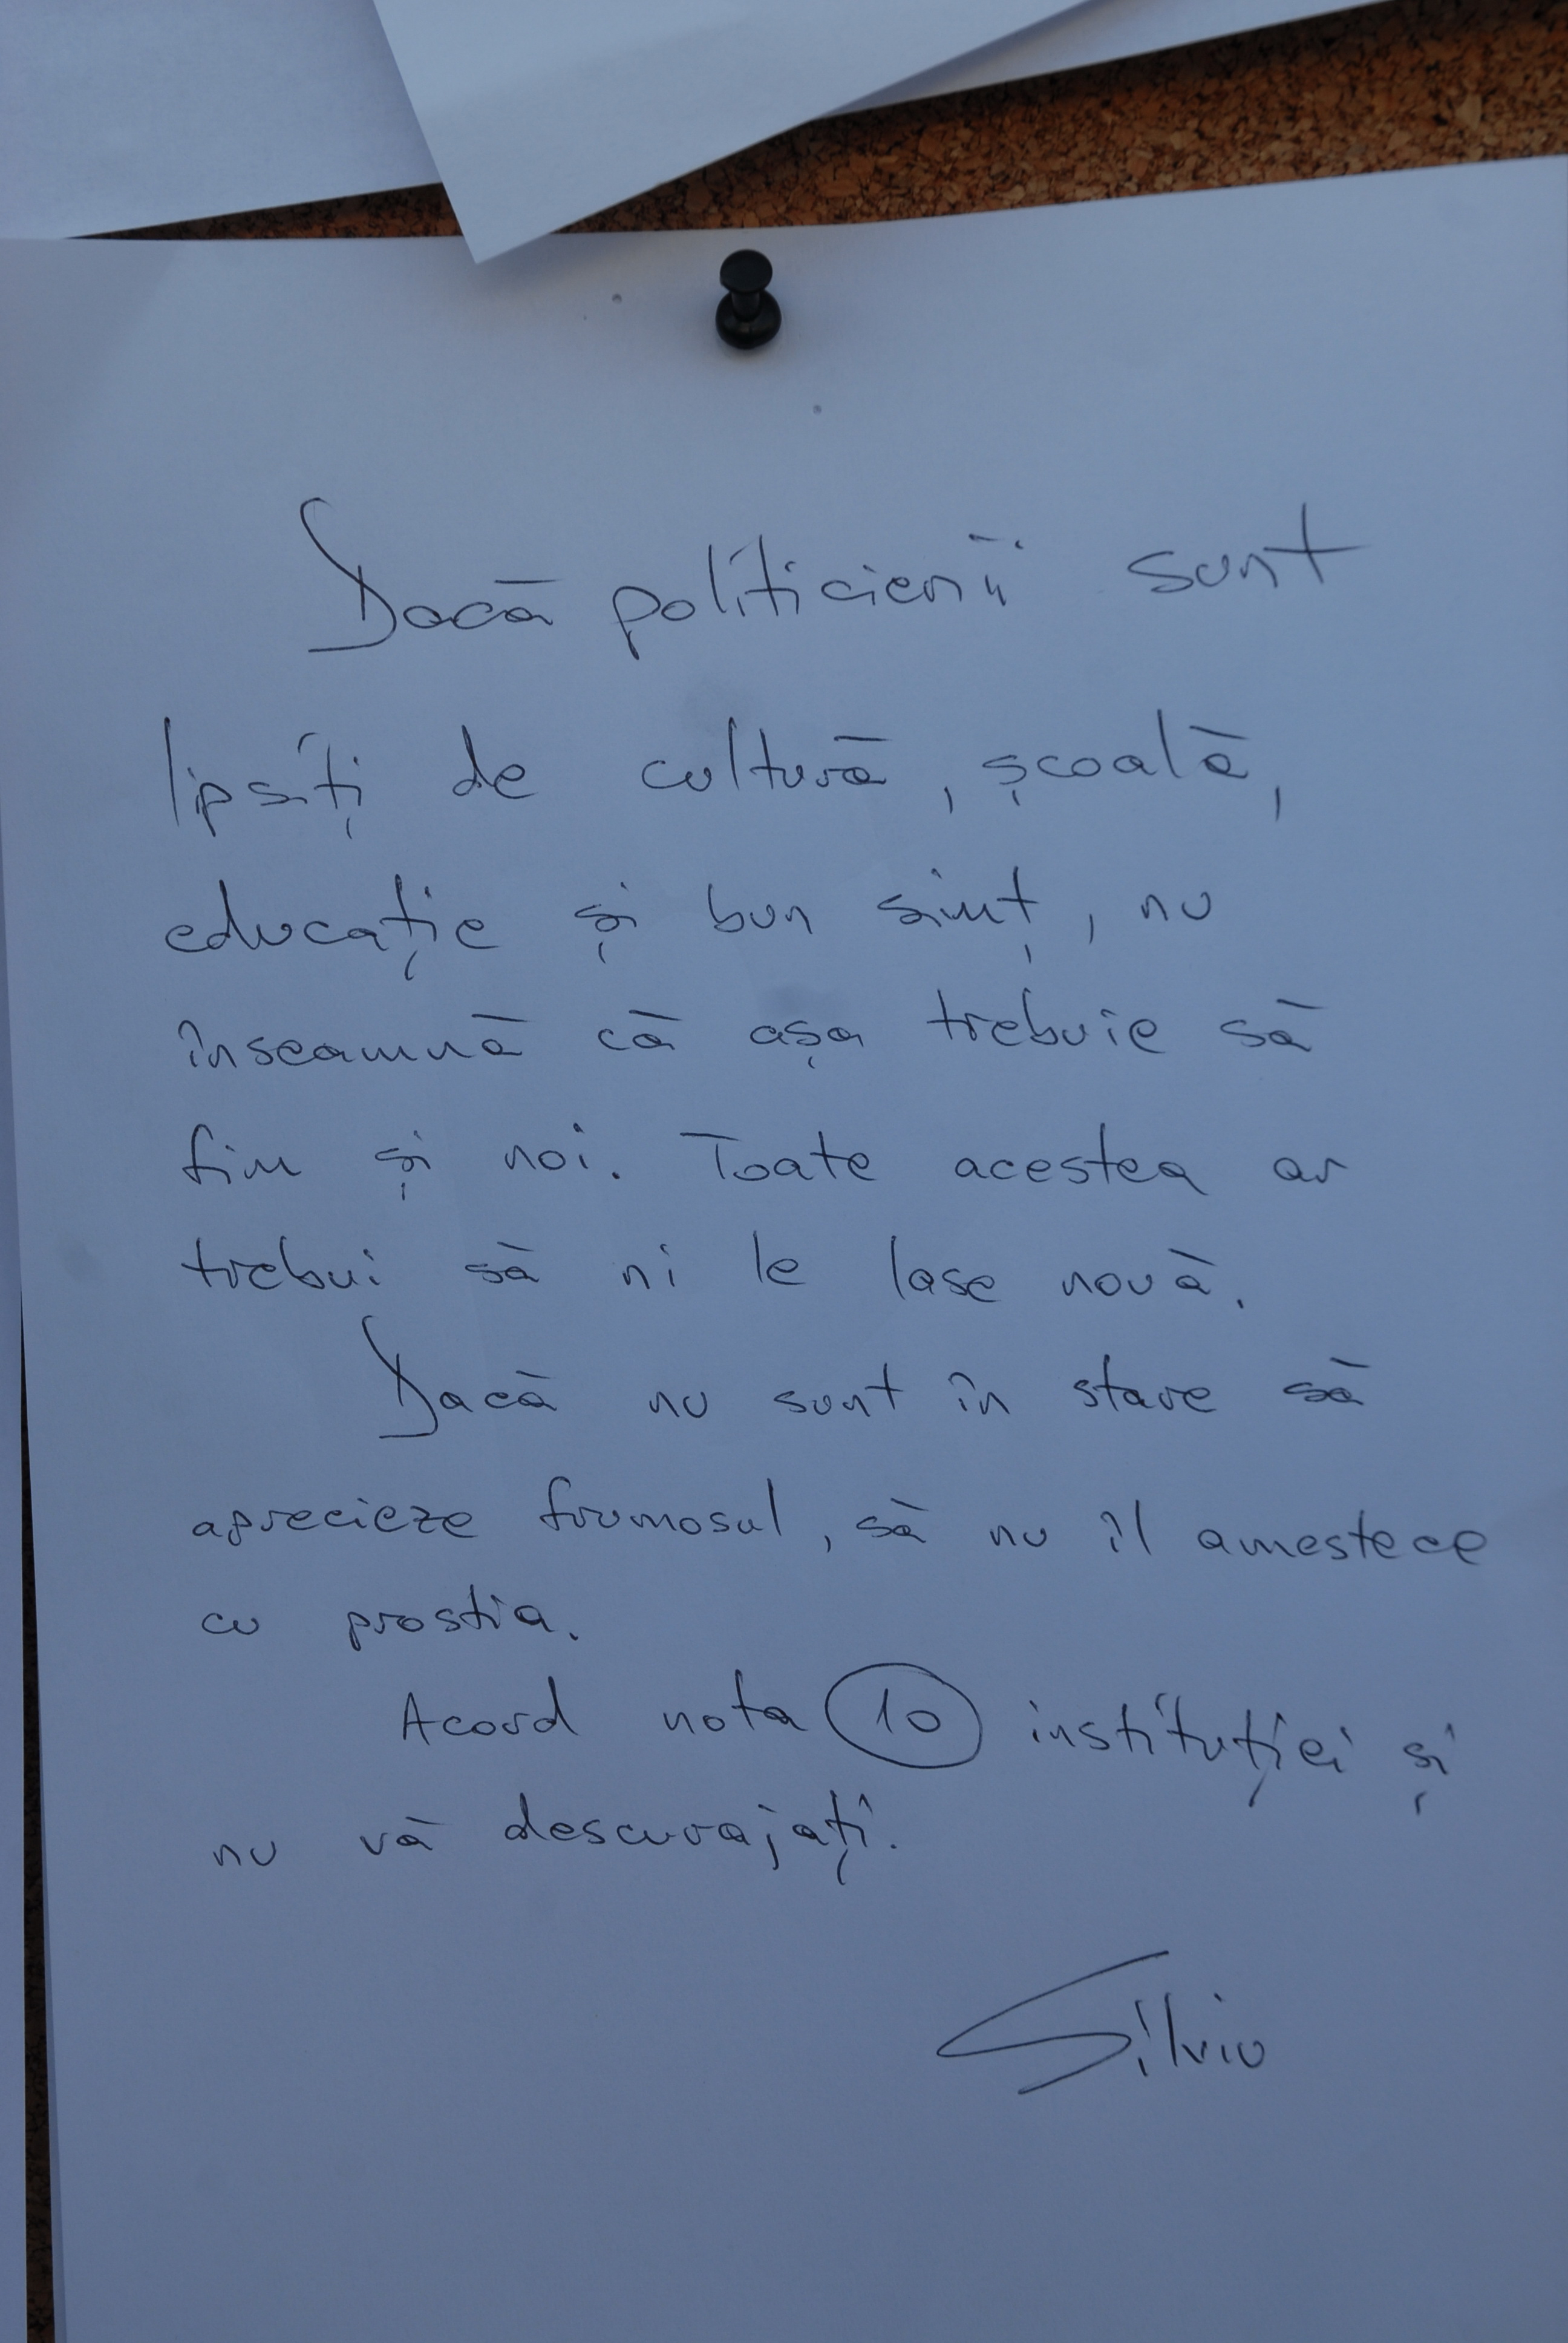 Dacă politicienii sunt
lipsiți de cultură, școală,
educație și bun simț, nu
înseamnă că așa trebuie să
fim și noi. Toate acestea ar
trebui să ni le lase nouă.
Dacă nu sunt în stare să
aprecieze frumosul, să nu îl amestece
cu prostia.
Acord nota 10 instituției și
nu vă descurajați.
Silviu